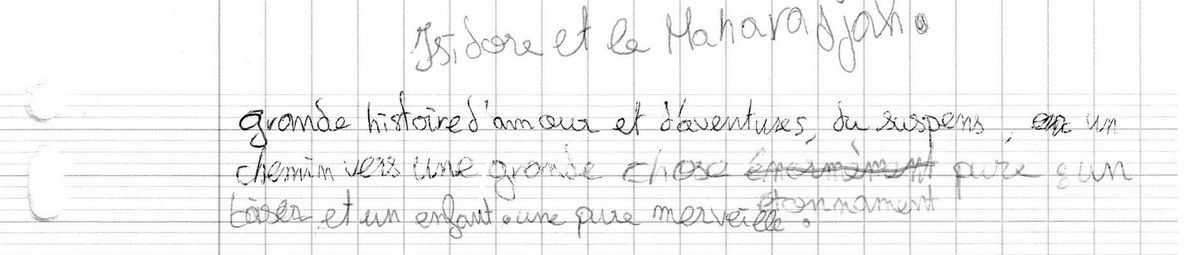 Isidore et le Maharadjah.
grande histoire d'amour et d'aventures, du suspens, un
chemin vers une grande chose énormèment pure : un
baiser et un enfant. une pure merveille.
étonnament